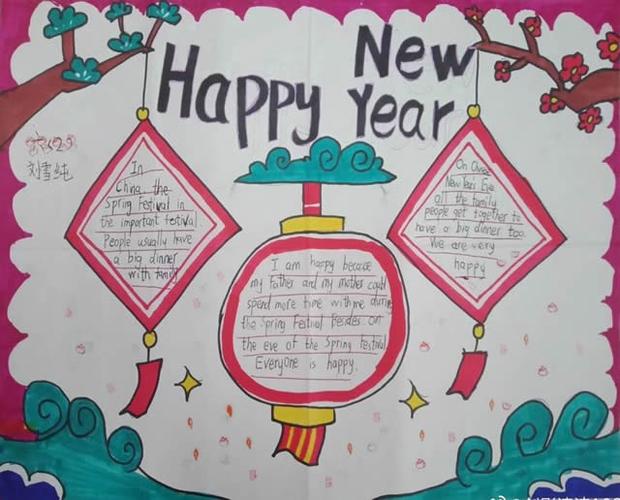 Happy New Year
六29
刘雪纯
In
China, the
Spring Festival in
the important festival.
People usually have
a big dinner
with family
I am happy because
my father and my mother could
spend more time with me during
the Spring Festival Besides on
the eve of the Spring Festival
Everyone is happy.
On Chinese
New Year's Eve
all the family
people get together to
have a big dinner too.
We are very
happy